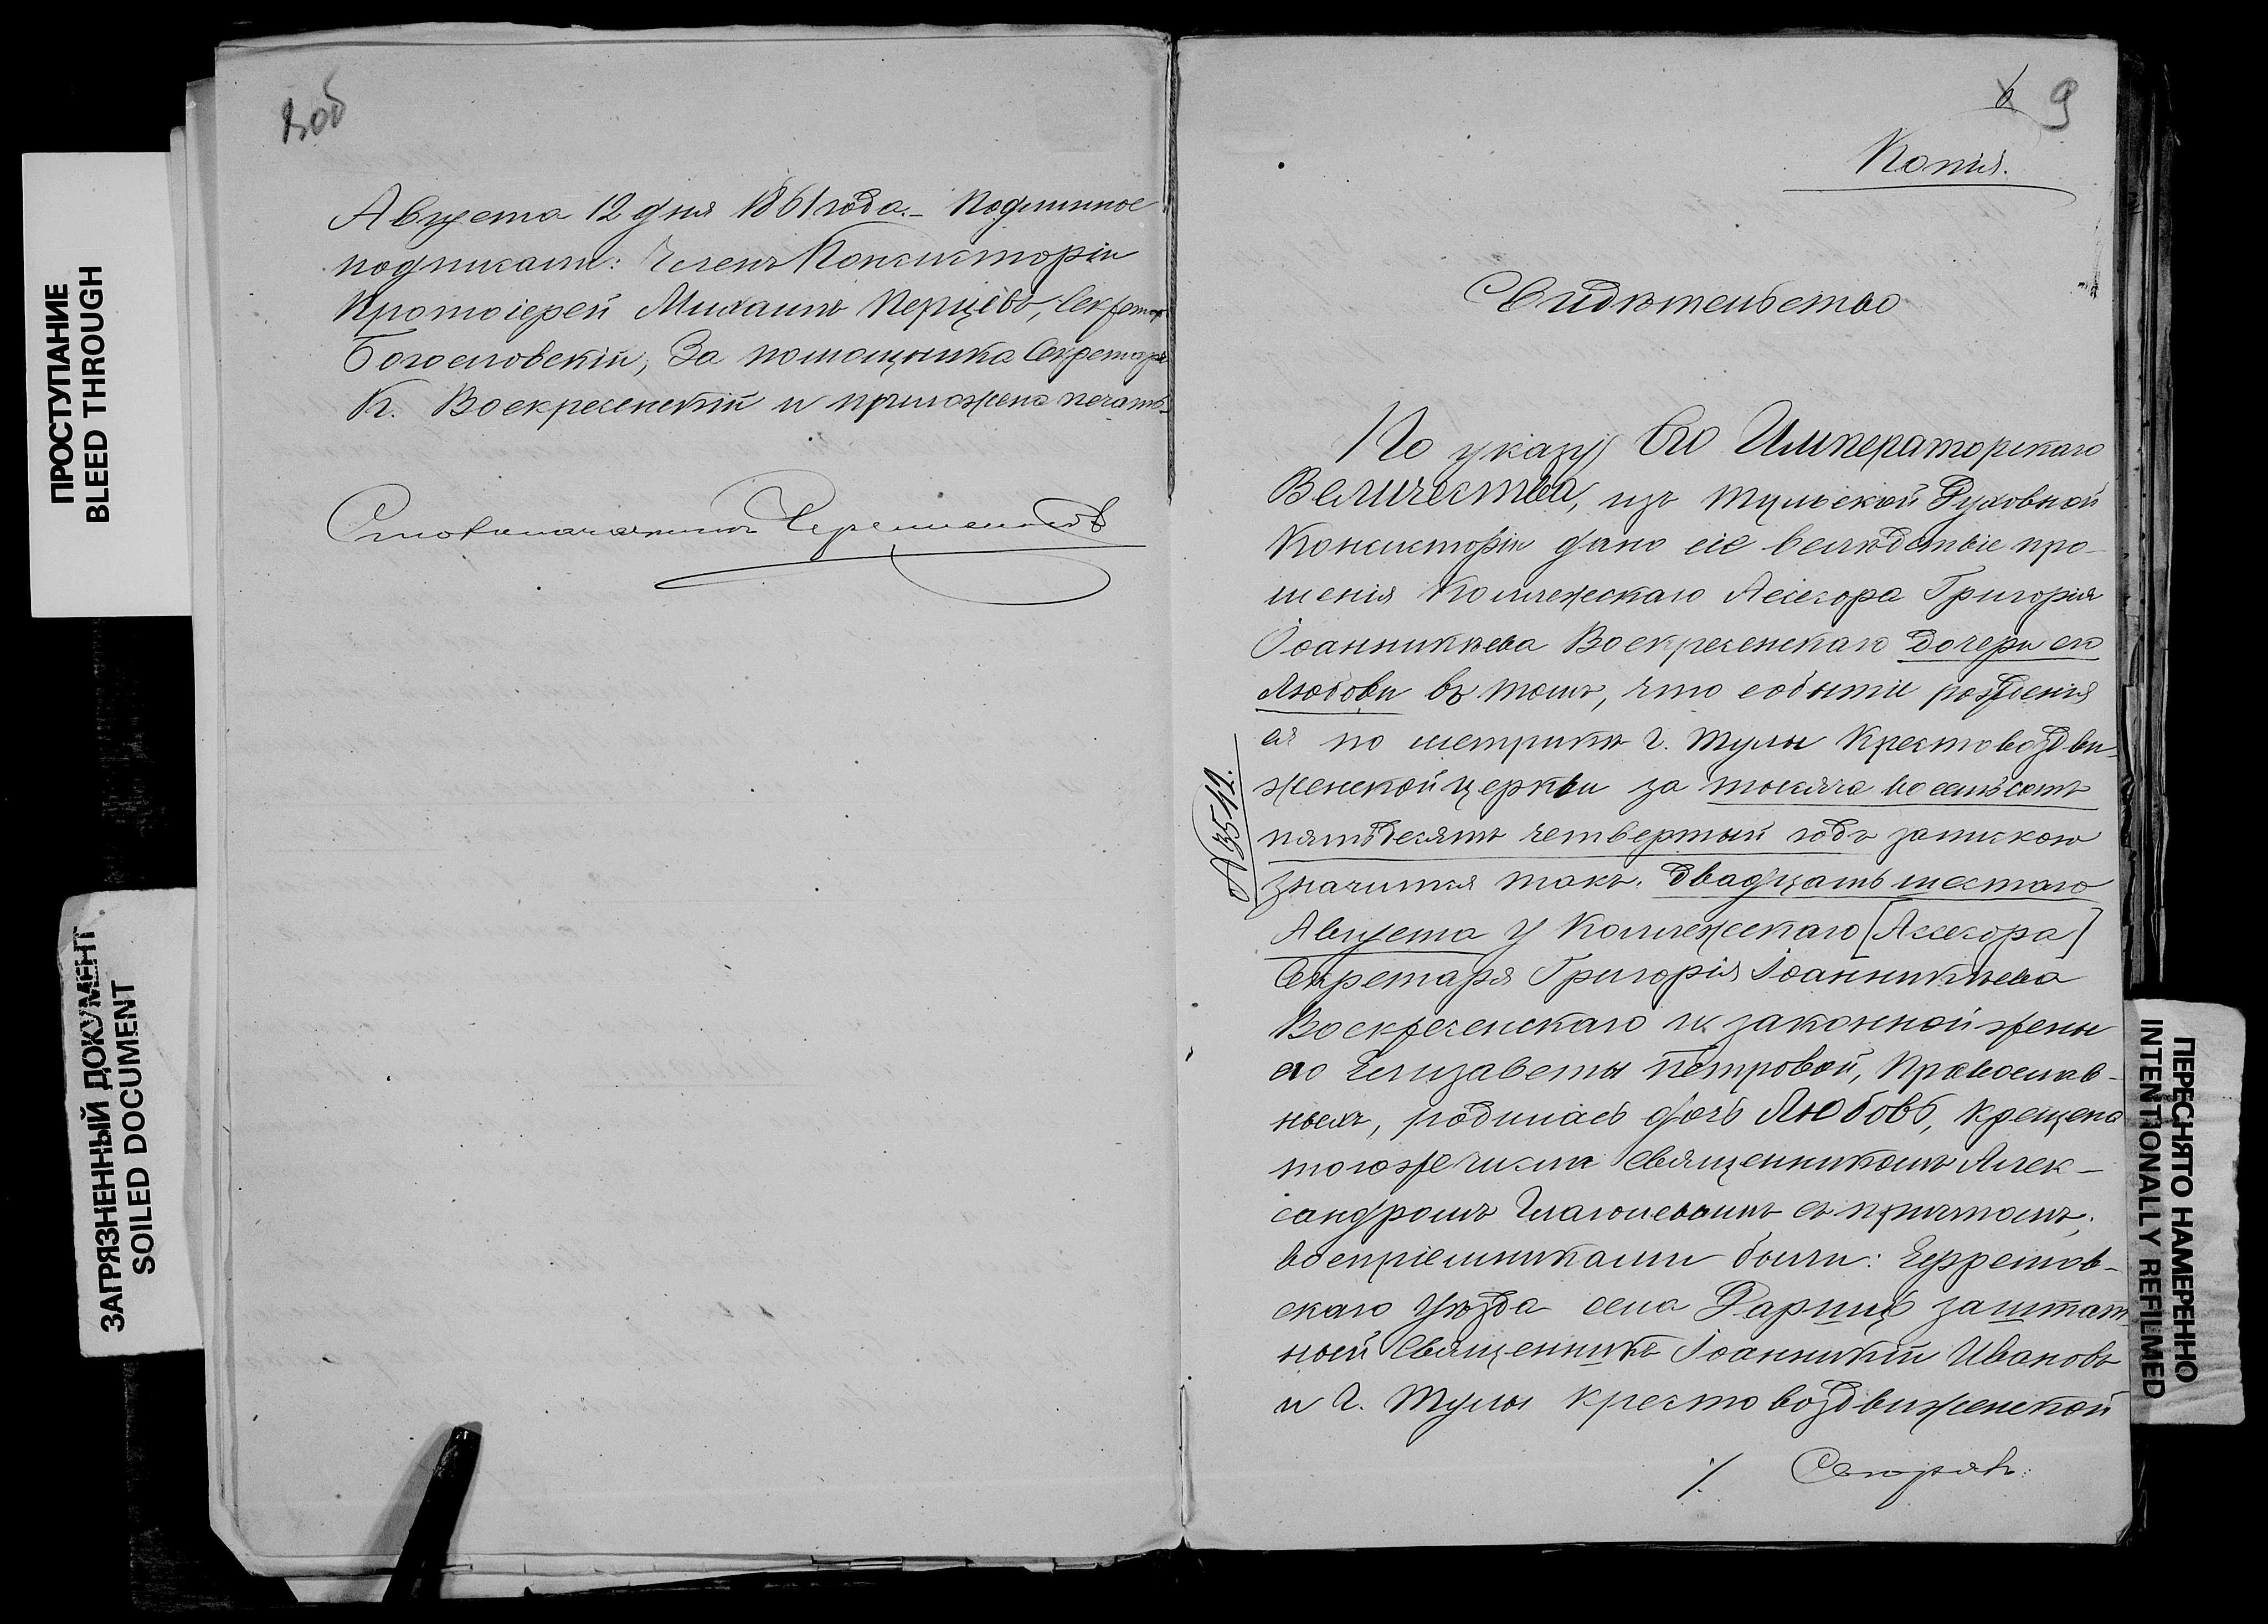 8об
Августа 12 дня 1861 года.- Подлинное
подписали: Членъ Консисторіи
Протоіерей Михаилъ Перцевъ, Секретарь
Богословскій, За помощника Секретаря
К. Воскресенскій и приложена печать.
Столоначальникъ
ПРОСТУПАНИЕ
BLEED THROUGH
ЗАГРЯЗНЕННЫЙ ДОКУМЕНТ
SOILED DOCUMENT
6 9
Копія.
Свидѣтельство
По указу Его Императорскаго
Величества, изъ Тульской Духовной
Консисторіи дано сіе вслѣдствіе про-
шенія Коллежскаго Ассесора Григорія
Іоанникіева Воскресенскаго дочери его
Любови въ томъ, что событіе рожденія
ея по метрикѣ г. Тулы Крестовоздви-
женской церкви за тысяча восемьсотъ
пятьдесятъ четвертый годъ запискою
значится такъ: Двадцать шестаго
Августа у Коллежскаго [Ассесора]
Секретаря Григорія Іоанникіева
Воскресенскаго и законной жены
его Елизаветы Петровой, Православ-
ныхъ, родилась дочь Любовь, крещена
тогоже числа Священникомъ Алек-
сандромъ Глаголевымъ съ причтомъ;
воспріемниками были: Ефремов-
скаго Уѣзда села заштат-
ный Священникъ Іоанникій Ивановъ
и г. Тулы Крестовоздвиженской
№ 3512.
ПЕРЕСНЯТО НАМЕРЕННО
INTENTIONALLY REFILMED